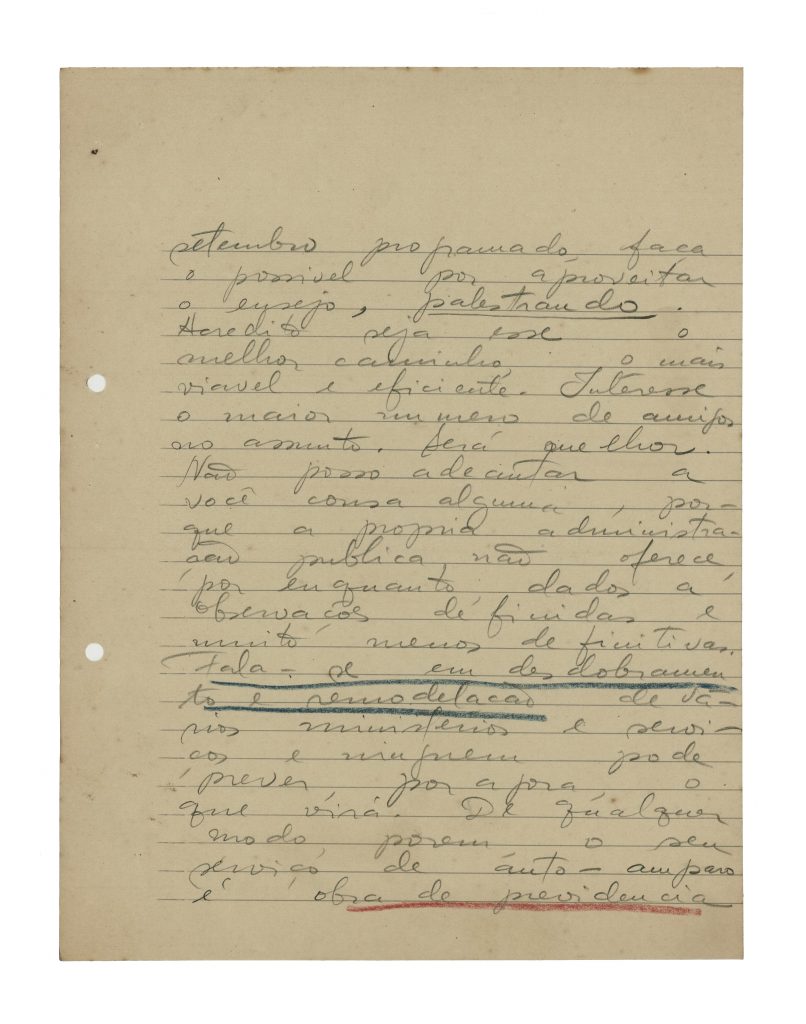 setembro programado, faça
o possivel por aproveitar
o ensejo, palestrando.
Acredito seja esse o
melhor caminho, o mais
viavel e eficiente. Interesse
o maior numero de amigos
no assunto. Será melhor.
Não posso adeantar a
você cousa alguma, por-
que a propria administra-
ção publica não oferece,
por enquanto, dados a
observações definidas e
muito menos definitivas.
Fala-se em desdobramen
to e remodelação de vá-
rios ministerios e servi-
ços e ninguem pode
prever, por agora o
que virá. De qualquer
modo, porem o seu
serviço de auto-amparo
é obra de previdencia